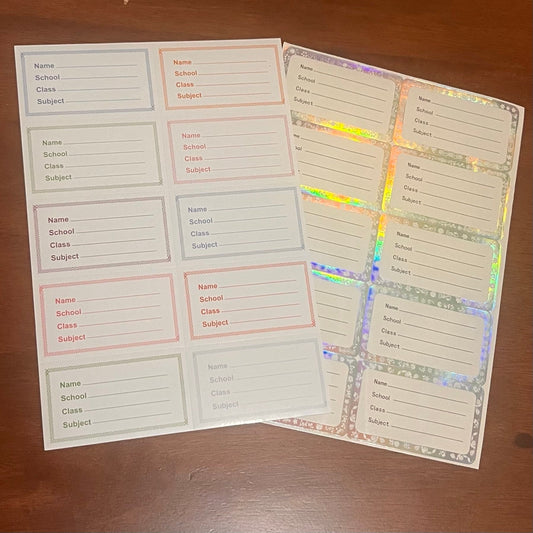 Name
School
Class
Subject
Name
School
Class
Subject
Name
School
Class
Subject
Name
School
Class
Subject
Name
School
Class
Subject
Name
School
Class
Subject
Name
School
Class
Subject
Name
School
Class
Subject
Name
School
Class
Subject
Name
School
Class
Subject
Name
School
Class
Subject
Name
School
Class
Subject
Name
School
Class
Subject
Name
School
Class
Subject
Name
School
Class
Subject
Name
School
Class
Subject
Name
School
Class
Subject